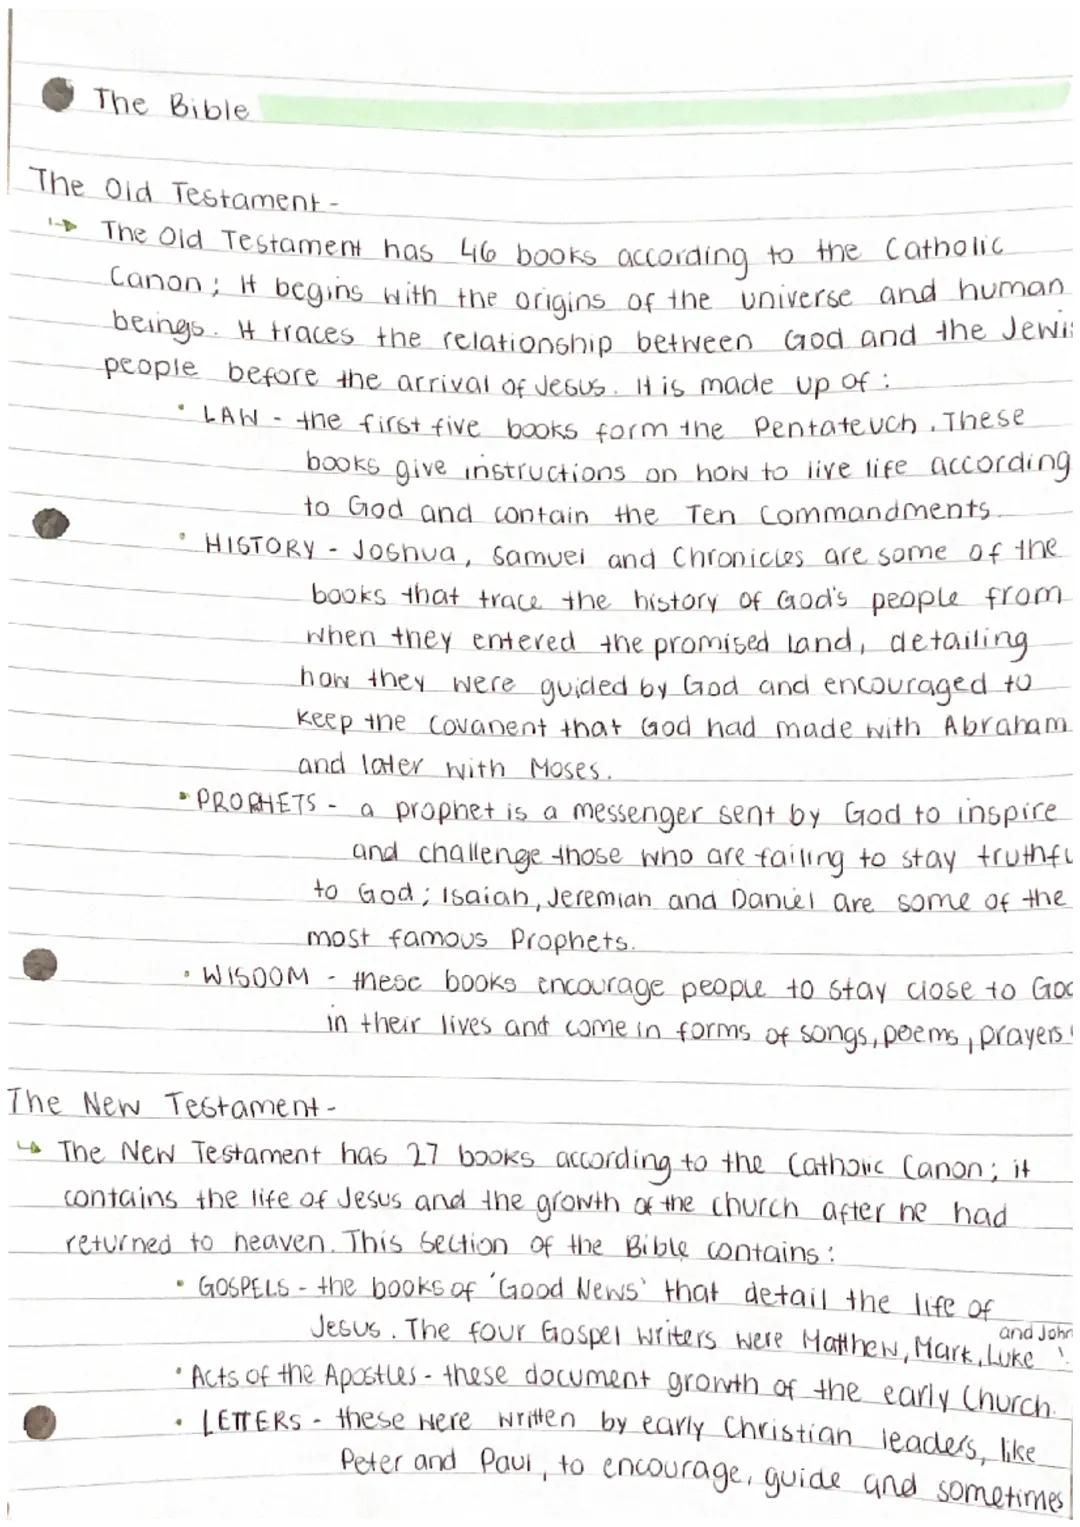 The Bible
The Old Testament -
The Old Testament has 46 books according to the Catholic
Canon; It begins with the origins of the universe and human
beings. It traces the relationship between God and the Jewis
people before the arrival of Jesus. It is made up of :
• LAW - the first five books form the Pentateuch. These
books give instructions on how to live life according
to God and contain the Ten Commandments.
• HISTORY - Joshua, Samuel and Chronicles are some of the
books that trace the history of God's people from
when they entered the promised land, detailing
how they were guided by God and encouraged to
keep the covanent that God had made with Abraham
and later with Moses.
• PROPHETS - a prophet is a messenger sent by God to inspire
and challenge those who are failing to stay truthfu
to God; Isaiah, Jeremiah and Daniel are some of the
most famous Prophets.
• WISDOM - these books encourage people to stay close to God
in their lives and come in forms of songs, poems, prayers
The New Testament -
The New Testament has 27 books according to the Catholic Canon; it
contains the life of Jesus and the growth of the church after he had
returned to heaven. This section of the Bible contains :
• GOSPELS - the books of 'Good News' that detail the life of
Jesus. The four Gospel writers were Matthew, Mark, Luke and John
• Acts of the Apostles - these document growth of the early Church.
• LETTERS - these were written by early Christian leaders, like
Peter and Paul, to encourage, guide and sometimes